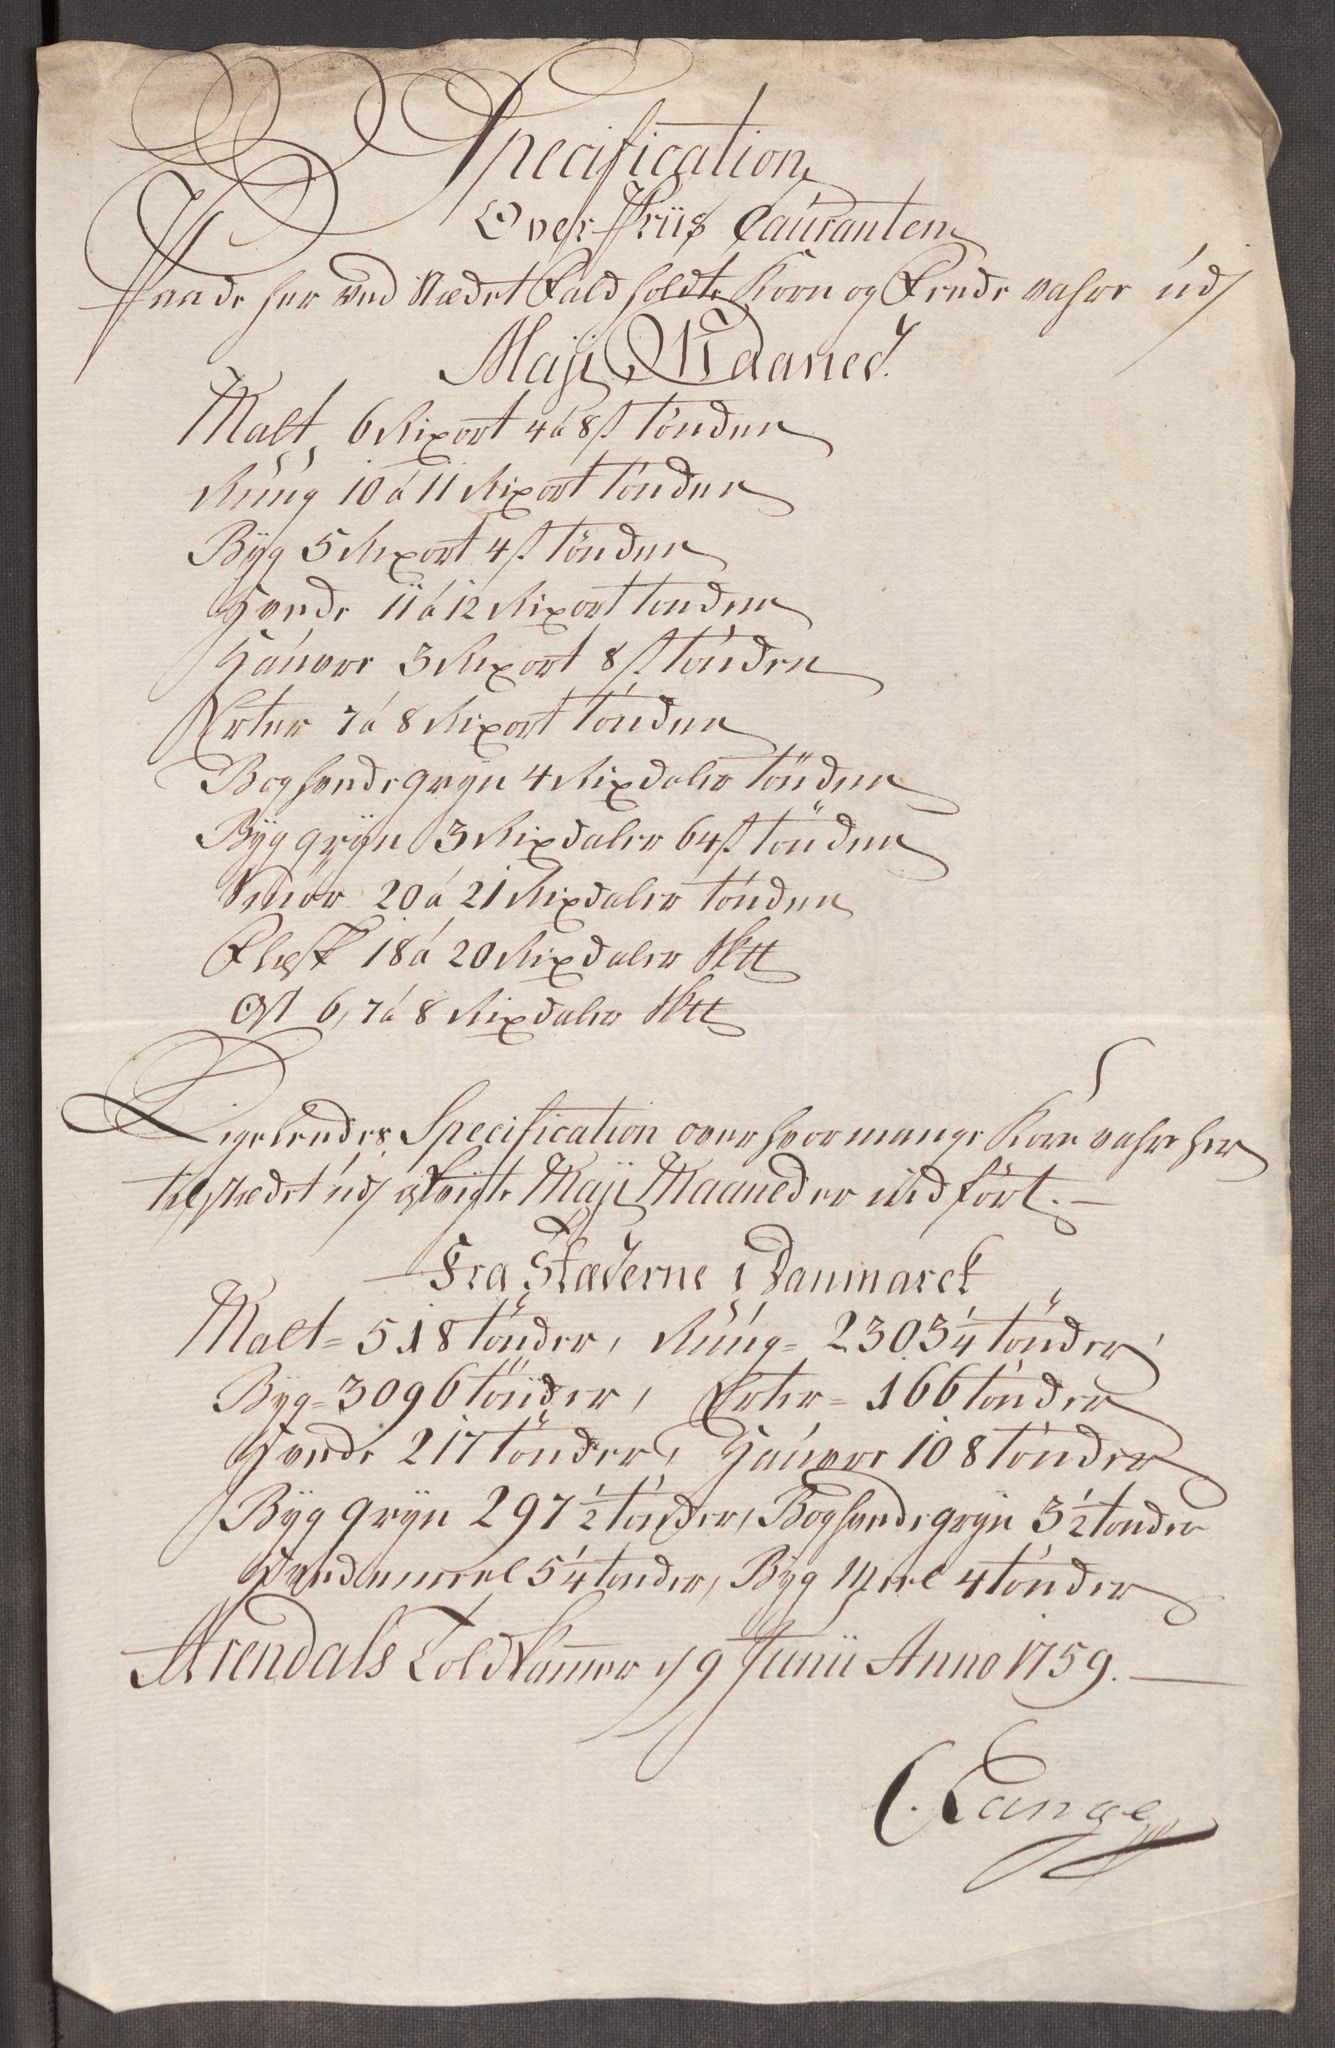 Specification
Over Priis Couranten
Paa de her ved Stædet Fald holdte Korn og Fede vahre udj
Maji Maaned.
Malt, 6 Rixort 4 á 8 s tönden
Rúug 10 á 11 Rixort tönden
Byg 5 Rixort 4 s tönden
Hvede 11 á 12 Rixort tönden
Haúvre 3 Rixort 8 s tönden
Erter 7 á 8 Rixort tönden
Boghvedegryn 4 Rixdaler tönden
Byggryn 3 Rixdaler 64 s tönden
Smör 20 á 21 Rixdaler tönden
Flesk 18 á 20 Rixdaler Sktt
Ost 6, 7 á 8 Rixdaler Sktt
Ligeledes Specification over hvor mange Korn vahre her
til Stædet udj Maji Maaned er ind fört. —
Fra Stæderne i Danmarck
Malt = 518 tönder, Rúug = 2303 1/4 tönder
Byg = 3096 tönder, Erter = 166 tönder
Hvede 217 tönder, Haúvre 108 tönder
Byg gryn 297 1/2 tönder, Boghvedegryn 3 1/2 tönder
Hvedemeel 5 1/4 tönder, Byg Meel 4 tönder
Arendals Told Kammer d 9 Junii Anno 1759. —
C. Lange